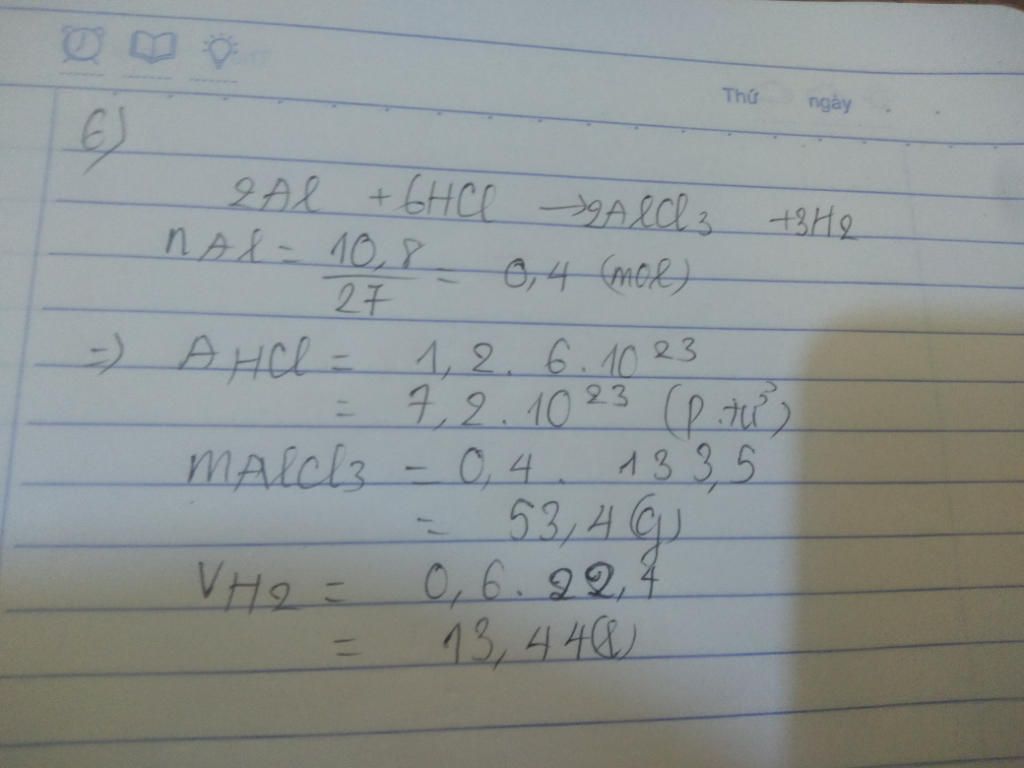 Thứ ngày
6)
2Al + 6HCl → 2AlCl3 + 3H2
nAl = 10,8/27 = 0,4 (mol)
=) AHCl = 1,2. 6.10^23
= 7,2.10^23 (p.tử)
mAlCl3 = 0,4. 133,5
= 53,4(g)
VH2 = 0,6. 22,4
= 13,44(l)